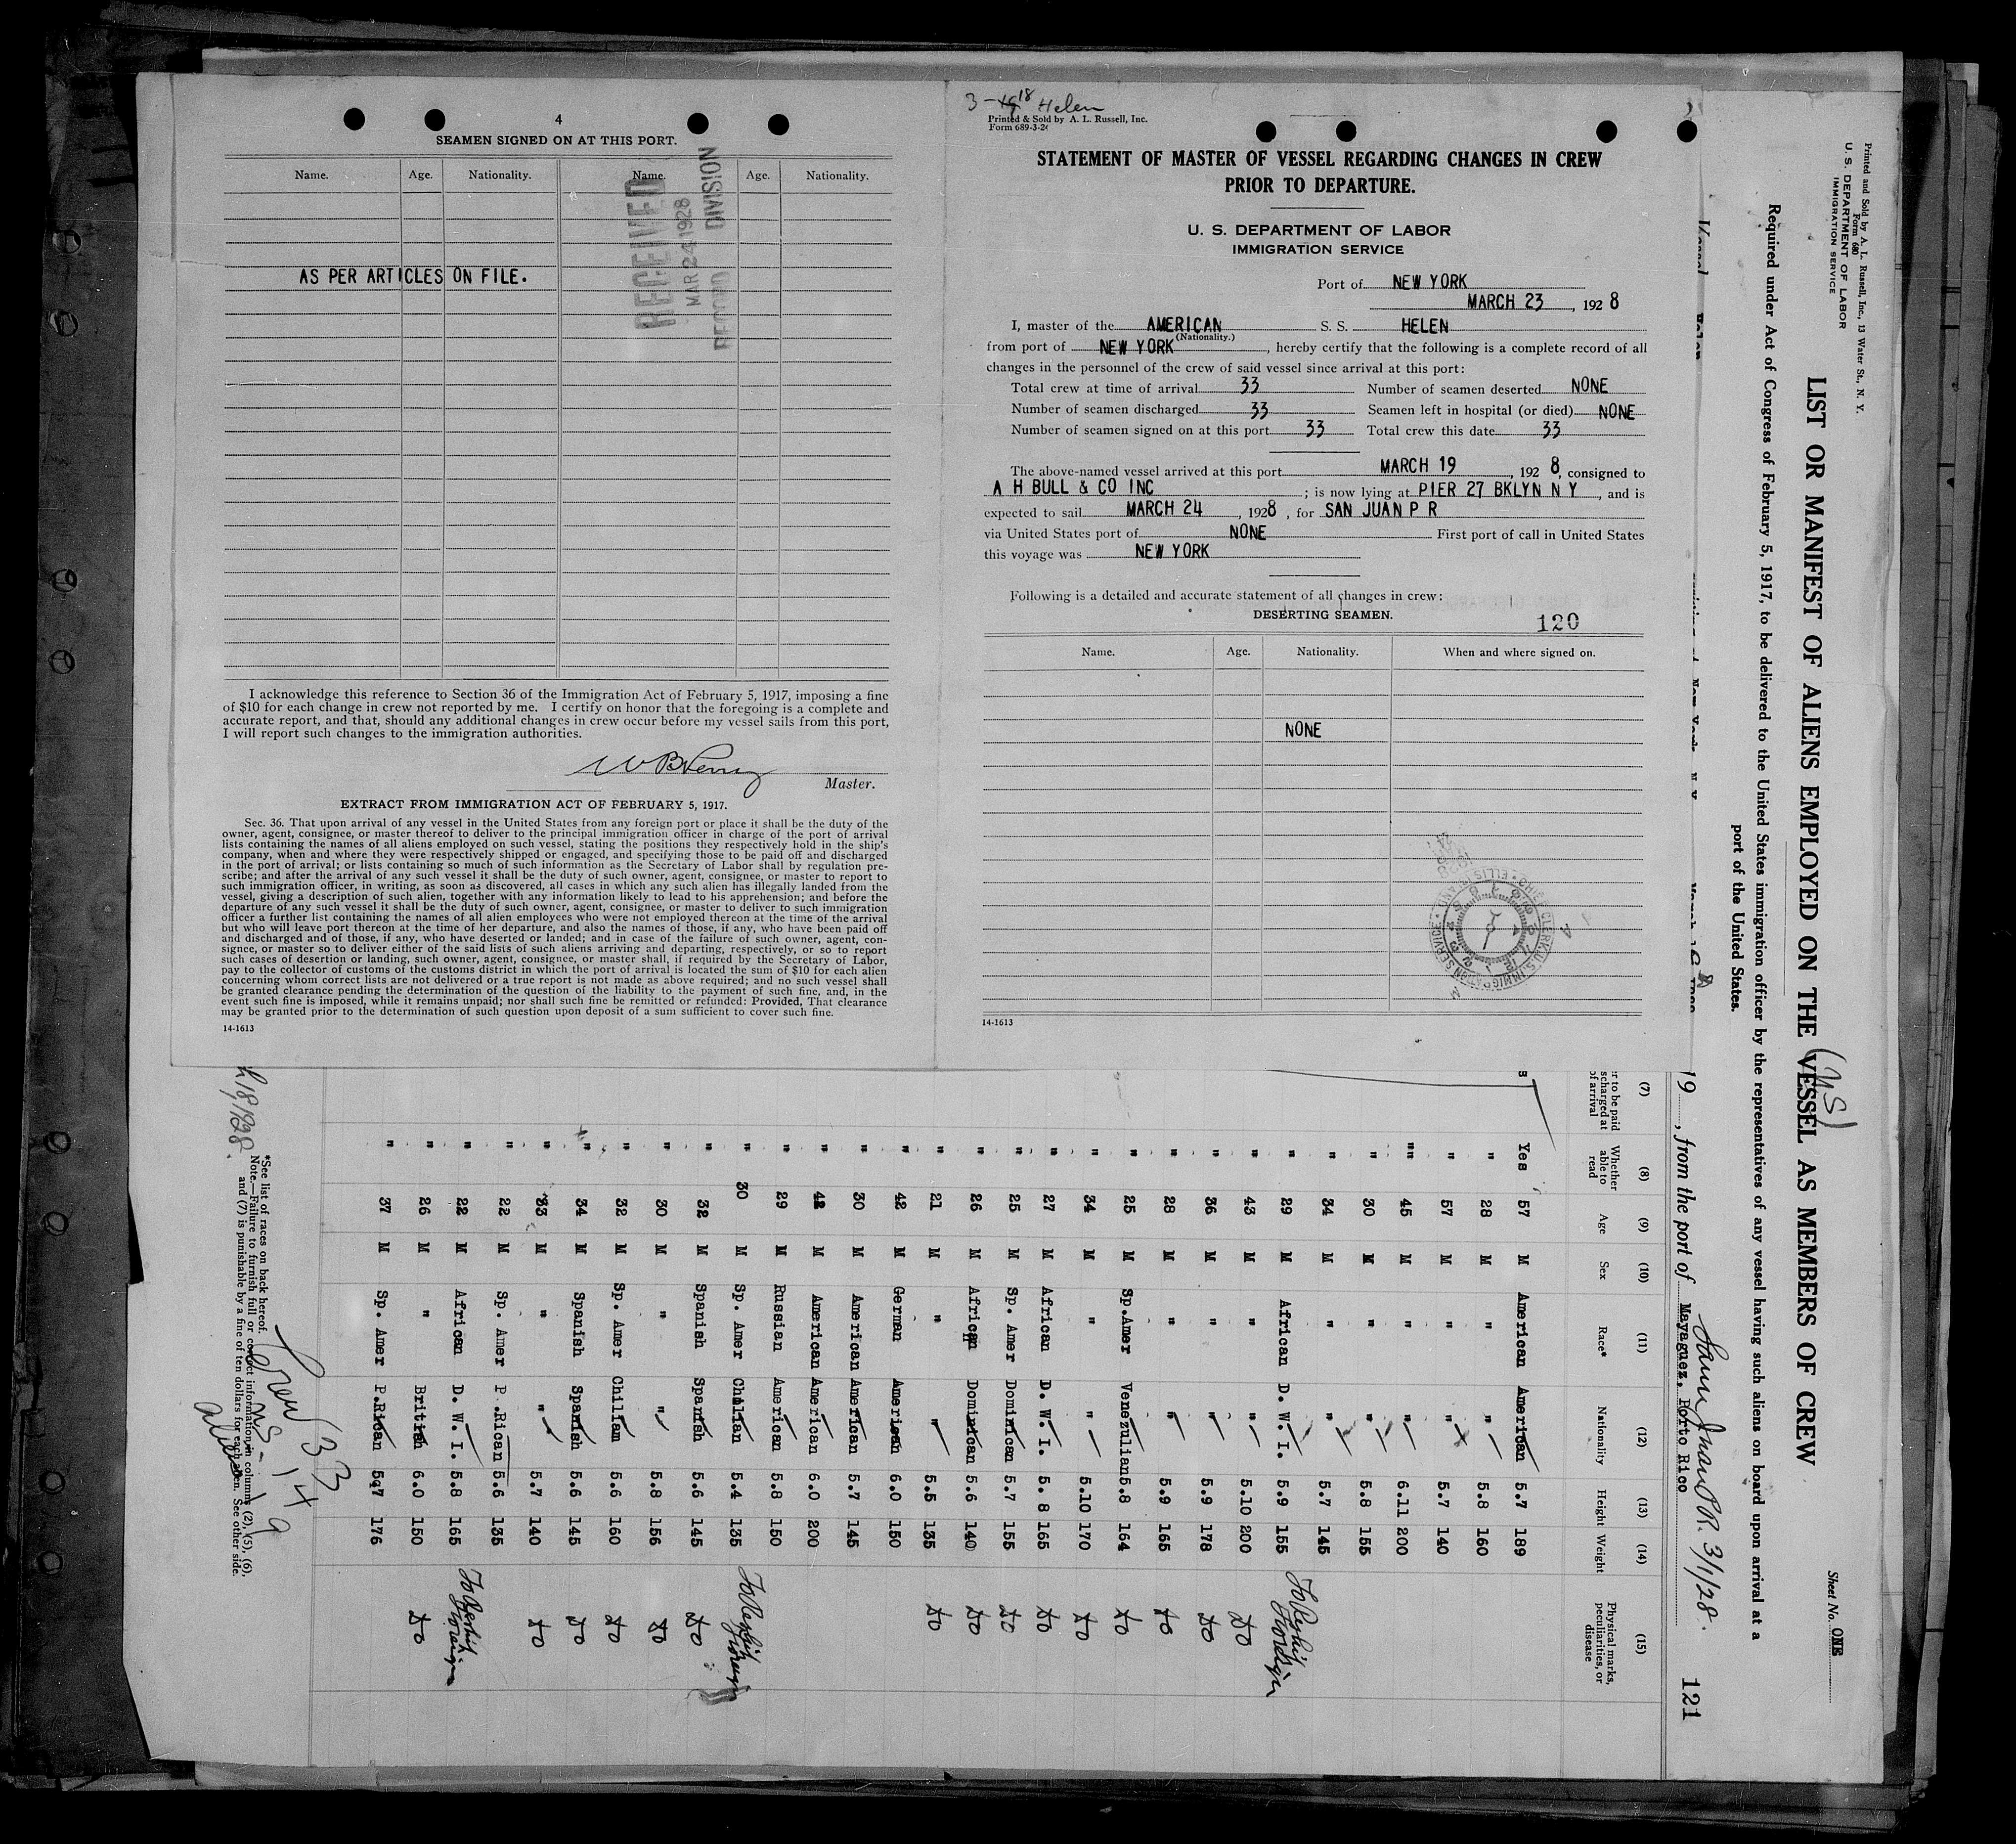 4
SEAMEN SIGNED ON AT THIS PORT.
Name. Age. Nationality. Name. Age. Nationality.
RECEIVED
MAR 24 1928
RECORD DIVISION
AS PER ARTICLES ON FILE.
I acknowledge this reference to Section 36 of the Immigration Act of February 5, 1917, imposing a fine
of $10 for each change in crew not reported by me. I certify on honor that the foregoing is a complete and
accurate report, and that, should any additional changes in crew occur before my vessel sails from this port,
I will report such changes to the immigration authorities.
Master.
EXTRACT FROM IMMIGRATION ACT OF FEBRUARY 5, 1917.
Sec. 36. That upon arrival of any vessel in the United States from any foreign port or place it shall be the duty of the
owner, agent, consignee, or master thereof to deliver to the principal immigration officer in charge of the port of arrival
lists containing the names of all aliens employed on such vessel, stating the positions they respectively hold in the ship's
company, when and where they were respectively shipped or engaged, and specifying those to be paid off and discharged
in the port of arrival; or lists containing so much of such information as the Secretary of Labor shall by regulation pre-
scribe; and after the arrival of any such vessel it shall be the duty of such owner, agent, consignee, or master to report to
such immigration officer, in writing, as soon as discovered, all cases in which any such alien has illegally landed from the
vessel, giving a description of such alien, together with any information likely to lead to his apprehension; and before the
departure of any such vessel it shall be the duty of such owner, agent, consignee, or master to deliver to such immigration
officer a further list containing the names of all alien employees who were not employed thereon at the time of the arrival
but who will leave port thereon at the time of her departure, and also the names of those, if any, who have been paid off
and discharged and of those, if any, who have deserted or landed; and in case of the failure of such owner, agent, con-
signee, or master so to deliver either of the said lists of such aliens arriving and departing, respectively, or so to report
such cases of desertion or landing, such owner, agent, consignee, or master shall, if required by the Secretary of Labor,
pay to the collector of customs of the customs district in which the port of arrival is located the sum of $10 for each alien
concerning whom correct lists are not delivered or a true report is not made as above required; and no such vessel shall
be granted clearance pending the determination of the question of the liability to the payment of such fine, and, in the
event such fine is imposed, while it remains unpaid; nor shall such fine be remitted or refunded: Provided, That clearance
may be granted prior to the determination of such question upon deposit of a sum sufficient to cover such fine.
14-1613
3-18 Helen
Printed & Sold by A. L. Russell, Inc.
Form 689-3-26
STATEMENT OF MASTER OF VESSEL REGARDING CHANGES IN CREW
PRIOR TO DEPARTURE.
U. S. DEPARTMENT OF LABOR
IMMIGRATION SERVICE
Port of NEW YORK
MARCH 23, 1928
I, master of the AMERICAN S. S. HELEN
(Nationality.)
from port of NEW YORK, hereby certify that the following is a complete record of all
changes in the personnel of the crew of said vessel since arrival at this port:
Total crew at time of arrival 33 Number of seamen deserted NONE
Number of seamen discharged 33 Seamen left in hospital (or died) NONE
Number of seamen signed on at this port 33 Total crew this date 33
The above-named vessel arrived at this port MARCH 19, 1928, consigned to
A H BULL & CO INC; is now lying at PIER 27 BKLYN N Y, and is
expected to sail MARCH 24, 1928, for SAN JUAN P R
via United States port of NONE First port of call in United States
this voyage was NEW YORK
Following is a detailed and accurate statement of all changes in crew:
DESERTING SEAMEN.
120
Name. Age. Nationality. When and where signed on.
NONE
14-1613
Printed and Sold by A. L. Russell, Inc., 13 Water St., N. Y.
Form 680
U. S. DEPARTMENT OF LABOR
IMMIGRATION SERVICE
Sheet No. ONE
(US)
LIST OR MANIFEST OF ALIENS EMPLOYED ON THE VESSEL AS MEMBERS OF CREW
Required under Act of Congress of February 5, 1917, to be delivered to the United States immigration officer by the representatives of any vessel having such aliens on board upon arrival at a
port of the United States.
San Juan P.R. 3/1/28.
19, from the port of Mayaguez, Porto Rico
121
(7) (8) (9) (10) (11) (12) (13) (14) (15)
Whether able to read Age Sex Race* Nationality Height Weight Physical marks, peculiarities, or disease
Yes 57 M American American 5.7 189
" 28 M " " 5.8 160
" 57 M " " 5.7 140
"" 45 M " " 6.11 200
" 30 M " " 5.8 155
" 34 M " " 5.7 145
" 29 M African D. W. I. 5.9 155 To Reship Foreign
" 43 M " " 5.10 200 do
" 36 M " " 5.9 178 do
" 28 M " " 5.9 165 do
" 25 M Sp.Amer Venezulian 5.8 164 do
" 34 M " " 5.10 170 do
" 27 M African D. W. I. 5. 8 165 do
" 25 M Sp. Amer Dominican 5.7 155 do
" 26 M African Dominican 5.6 140 do
" 21 M " " 5.5 135 do
" 42 M German American 6.0 150
" 30 M American American 5.7 145
" 42 M American American 6.0 200
" 29 M Russian American 5.8 150
" 30 M Sp. Amer Chilian 5.4 135 To Reship Foreign
" 32 M Spanish Spanish 5.6 145 do
" 30 M " " 5.8 156 do
" 32 M Sp. Amer Chiliam 5.6 160 do
" 34 M Spanish Spanish 5.6 145 do
" 33 M " " 5.7 140 do
" 22 M Sp. Amer P .Rican 5.6 135
" 22 M African D. W. I. 5.8 165 To Reship Foreign
" 26 M " British 6.0 150 do
" 37 M Sp. Amer P.Rican 5.7 176
*See list of races on back hereof.
Note.—Failure to furnish full or correct information in columns (2), (5), (6),
and (7) is punishable by a fine of ten dollars for each alien. See other side.
Crew 33
US - 14
Aliens 19